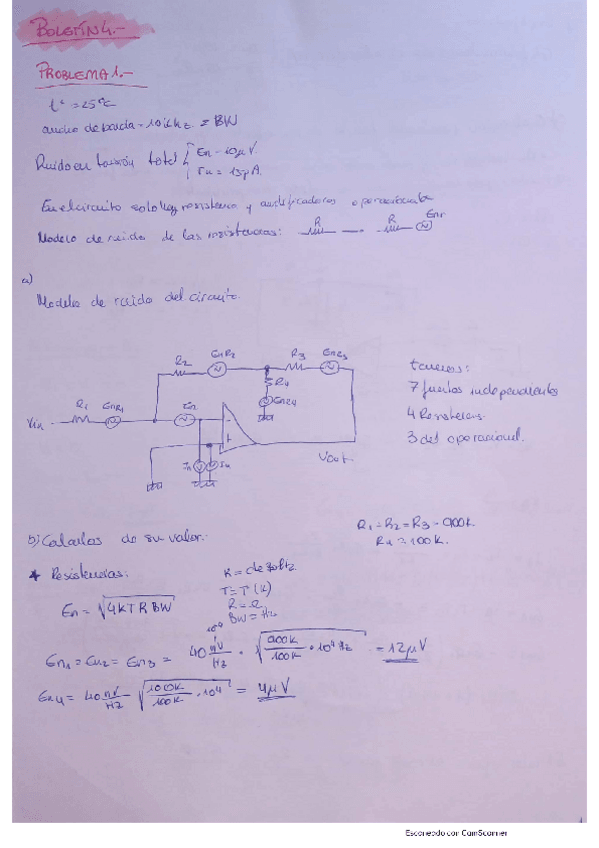 BOLETÍN 4.-
PROBLEMA 1.-
tª = 25ºC
ancho de banda - 10 kHz = BW
Ruido en tensión total { En - 10µV.
In = 15pA.
En el circuito solo hay resistencia y amplificadores operacionales
Modelo de ruido de las resistencias: R — R Enr
a)
Modelo de ruido del circuito.
R2 EnR2 R3 EnR3
R4
EnR4
R1 EnR1
Vin
En
In In
Vout
tenemos:
7 fuentes independientes
4 Resistencias.
3 del operacional.
b) Calculos de su valor:
R1=R2=R3=900k.
R4=100k.
* Resistencias:
K = de Boltz
T = Tª (K)
R = Ω
BW = Hz
En = √4KTRBW
10⁴
En1 = En2 = En3 = 40 nV/Hz · √900k/100k · 10⁴ Hz = 12µV
En4 = 40 nV/Hz √100k/100k · 10⁴ = 4µV
Escaneado con CamScanner